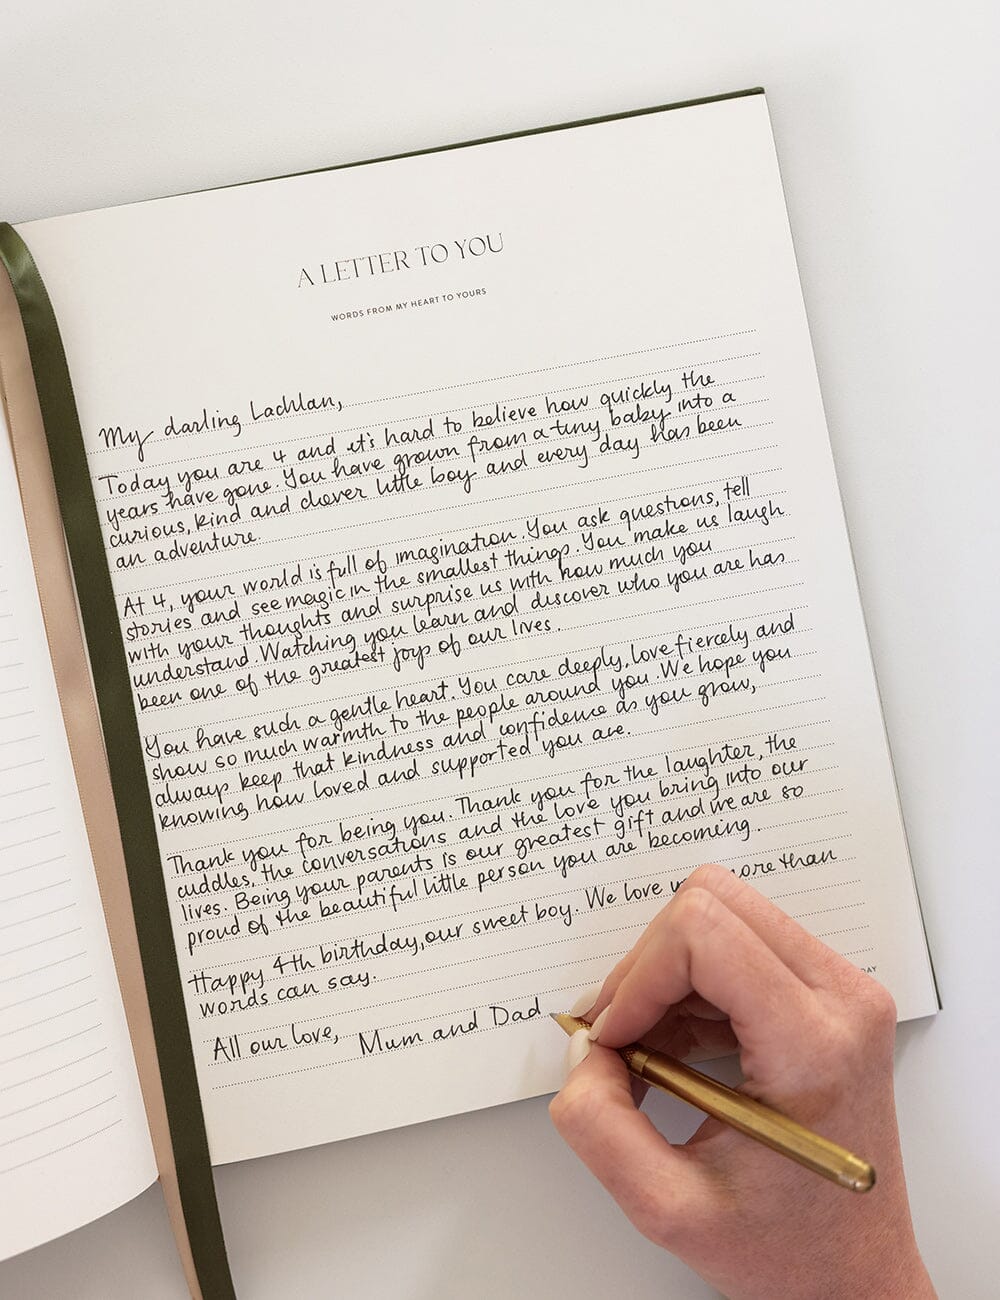 A LETTER TO YOU
WORDS FROM MY HEART TO YOURS
My darling Lachlan,
Today you are 4 and it's hard to believe how quickly the
years have gone. You have grown from a tiny baby into a
curious, kind and clever little boy and every day has been
an adventure.
At 4, your world is full of imagination. You ask questions, tell
stories and see magic in the smallest things. You make us laugh
with your thoughts and surprise us with how much you
understand. Watching you learn and discover who you are has
been one of the greatest joys of our lives.
You have such a gentle heart. You care deeply, love fiercely and
show so much warmth to the people around you. We hope you
always keep that kindness and confidence as you grow,
knowing how loved and supported you are.
Thank you for being you. Thank you for the laughter, the
cuddles, the conversations and the love you bring into our
lives. Being your parents is our greatest gift and we are so
proud of the beautiful little person you are becoming.
Happy 4th birthday, our sweet boy. We love more than
words can say.
All our love, Mum and Dad